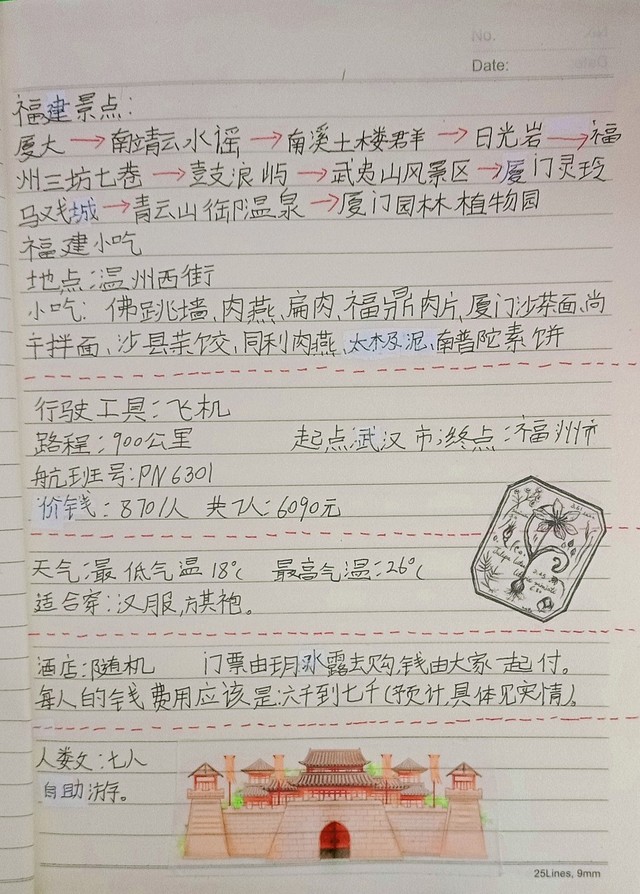 No.
Date:
福建景点:
厦大→南靖云水谣→南溪土楼群→日光岩→福
州三坊七巷→鼓浪屿→武夷山风景区→厦门灵玲
马戏城→青云山御温泉→厦门园林植物园
福建小吃
地点:温州西街
小吃: 佛跳墙、肉燕、扁肉、福鼎肉片、厦门沙茶面、尚
干拌面、沙县蒸饺、同利肉燕、太极泥、南普陀素饼
行驶工具:飞机
路程:900公里 起点:武汉市;终点:福州市
航班号:PN6301
价钱:870/人 共7人:6090元
天气:最低气温18°C 最高气温:26°C
适合穿:汉服,旗袍。
酒店:随机 门票由玥冰露去购,钱由大家一起付。
每人的钱费用应该是:六千到七千(预计,具体见实情)。
人数:七人
自助游。
25Lines, 9mm